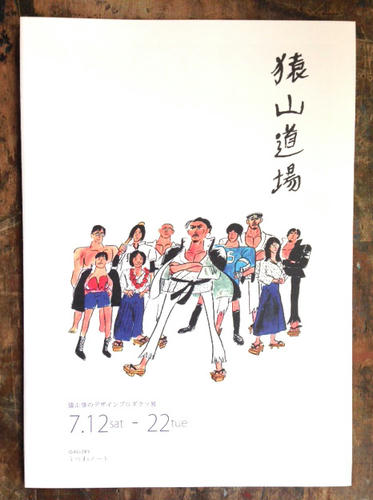 猿山道場
猿山修のデザインプロダクツ展
7.12sat - 22tue
GALLERY
うつわノート